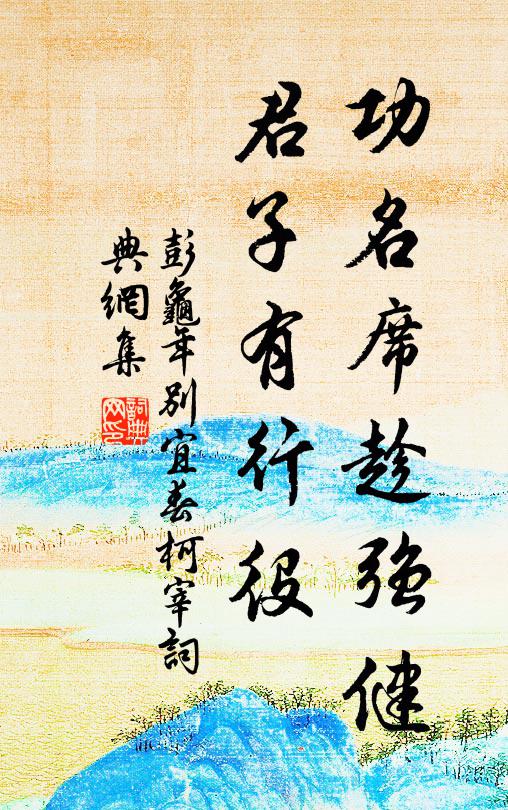 功名席趁強健
君子有行役
彭龜年別宜春柯宰詞
典網集
詞典
网印